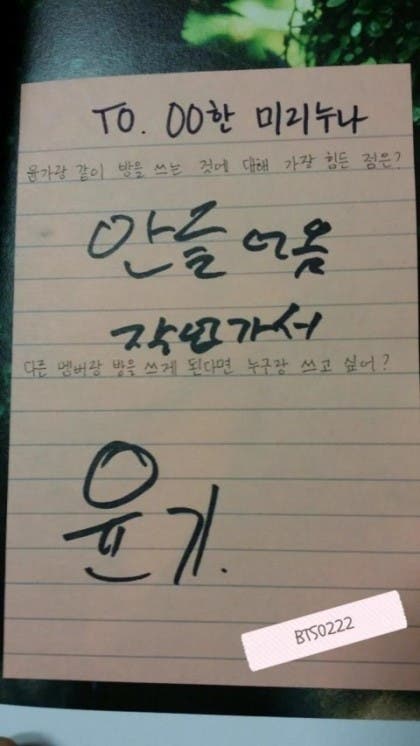 TO. OO한 미리누나
윤기랑 같이 방을 쓰는 것에 대해 가장 힘든 점은?
안들어옴
작년가서
다른 멤버랑 방을 쓰게 된다면 누구랑 쓰고 싶어?
윤기.
BTS0222